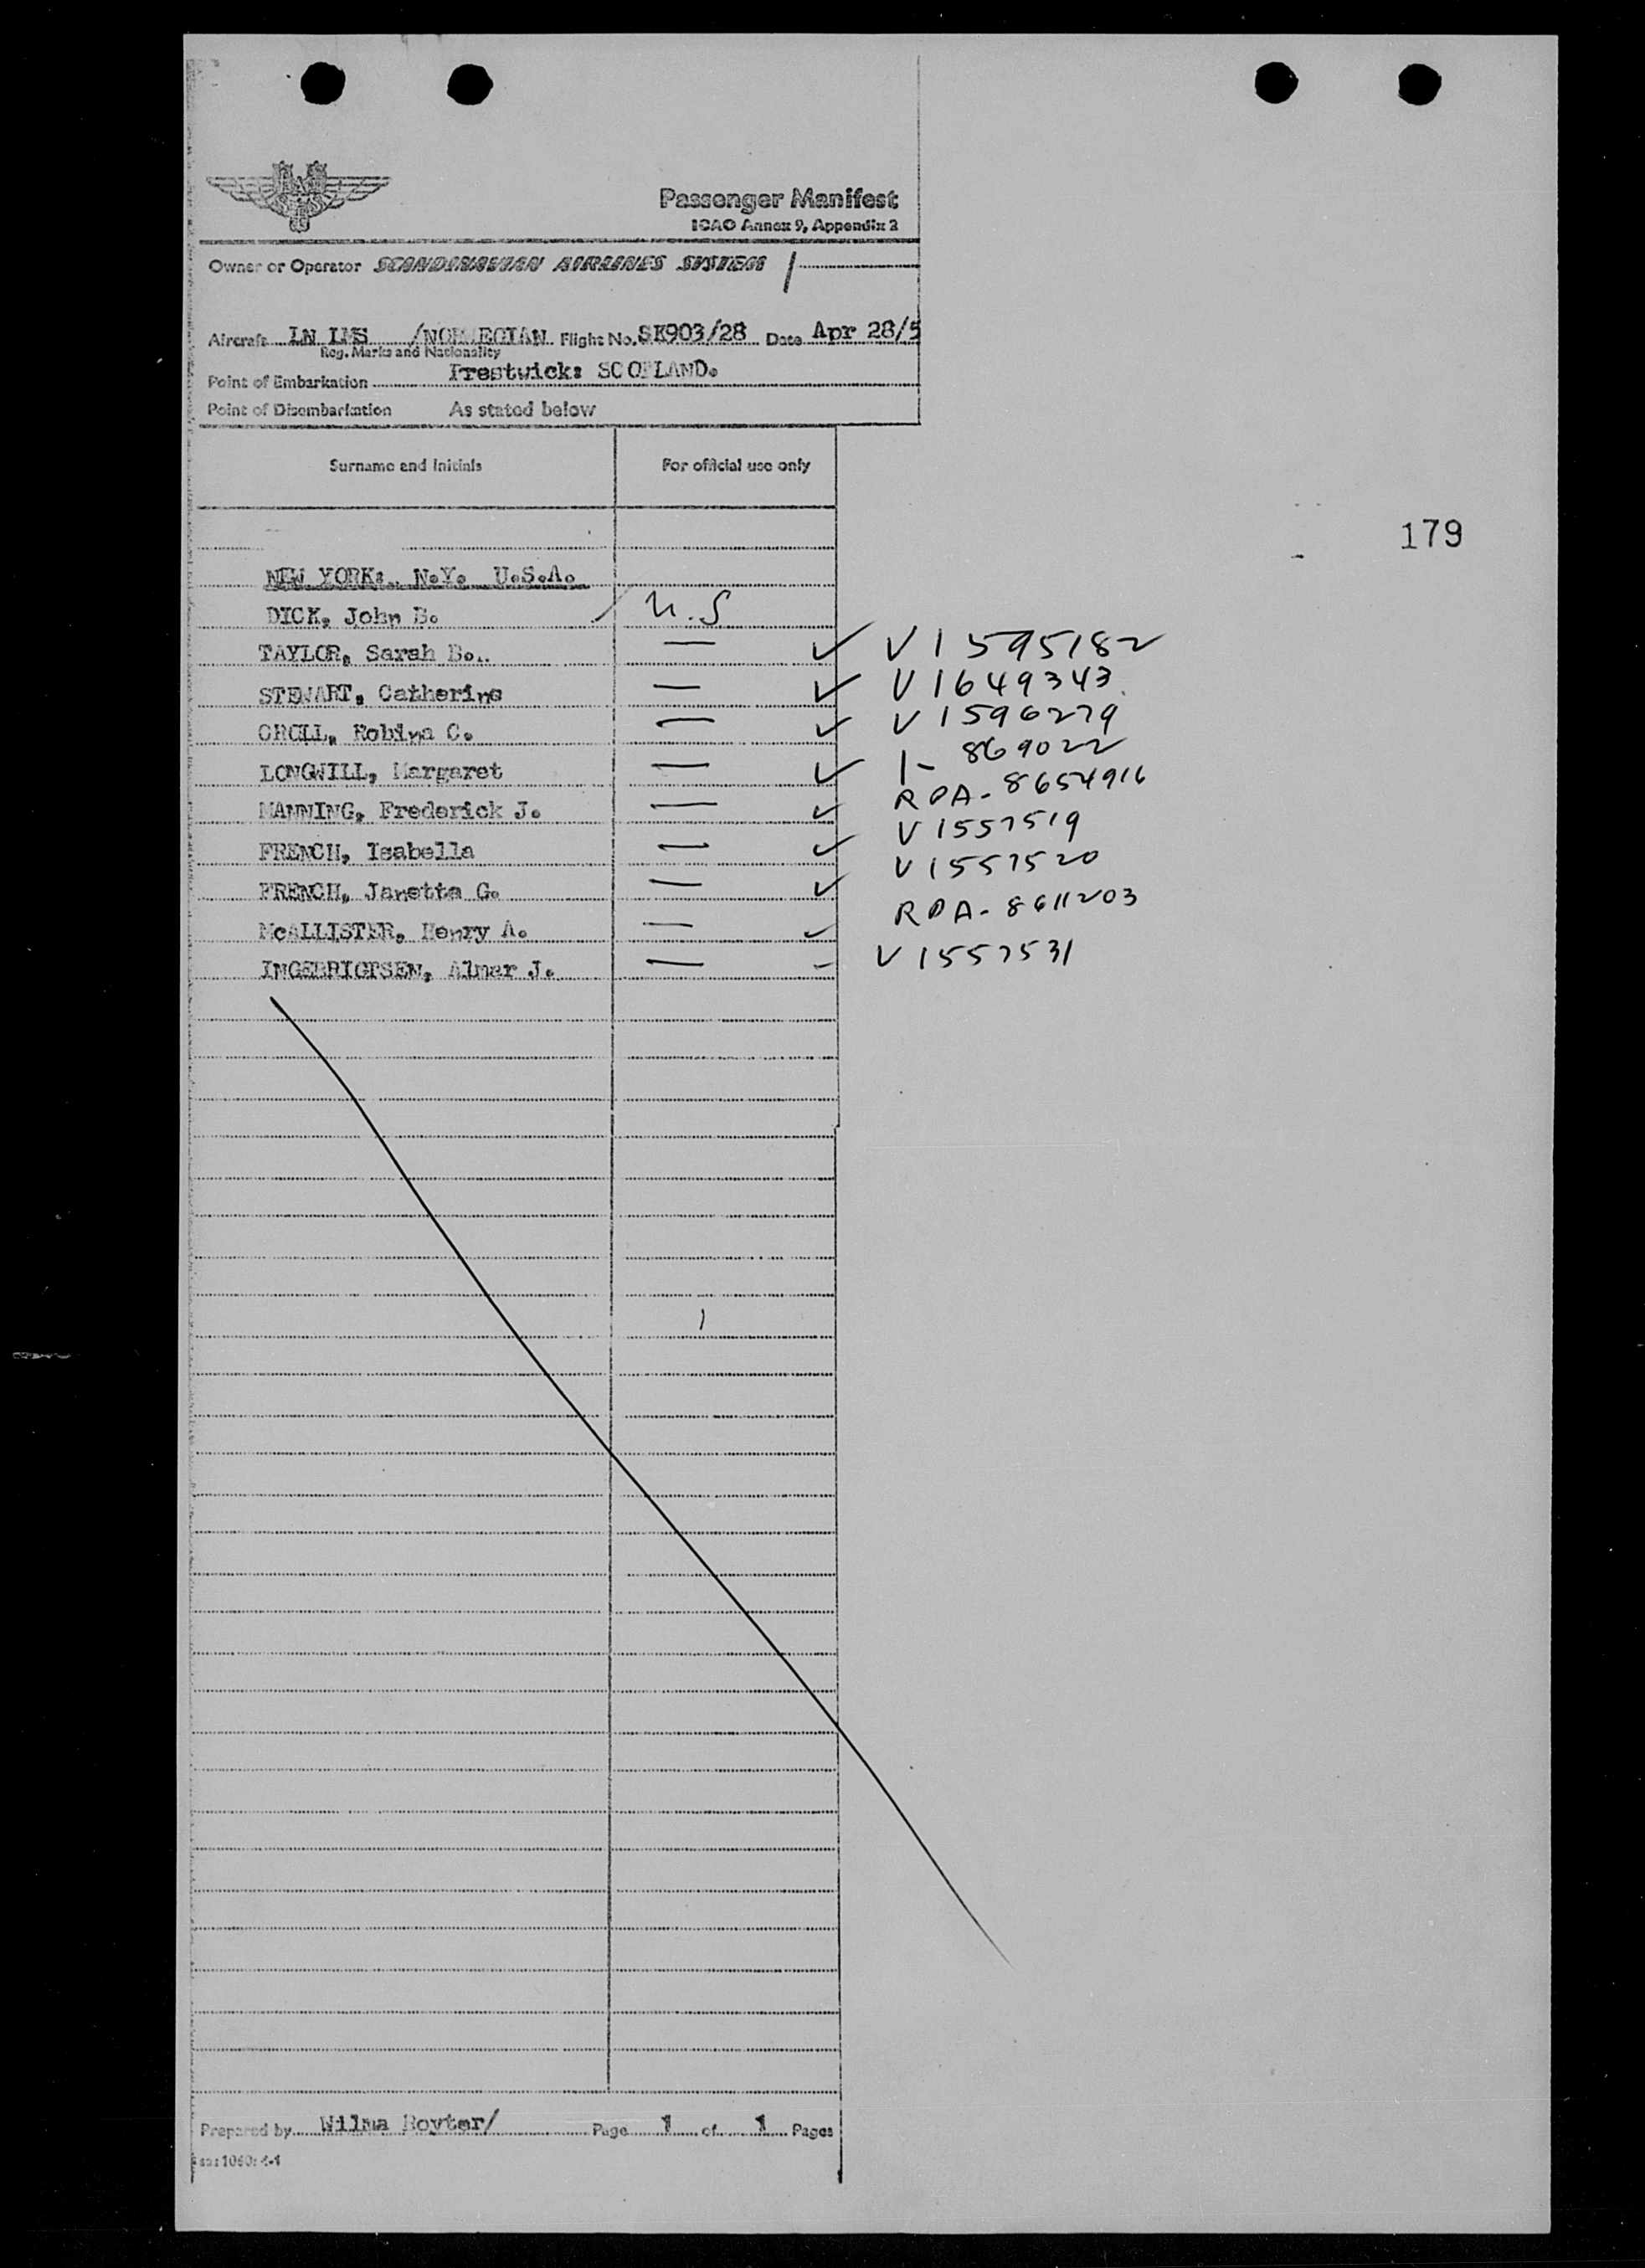 Passenger Manifest
ICAO Annex 9, Appendix 2
Owner or Operator SCANDINAVIAN AIRLINES SYSTEM /
Aircraft LN LMS /NORWEGIAN Flight No. SK903/28 Date Apr 28/5
Reg. Marks and Nationality
Point of Embarkation Prestwick: SCOTLAND.
Point of Disembarkation As stated below
Surname and Initials For official use only
179
NEW YORK: N.Y. U.S.A.
DICK, John B. / U.S
TAYLOR, Sarah B. — ✓ V1595182
STEWART, Catherine — ✓ V1649343
CROLL, Robina C. — ✓ V1596279
LONGWILL, Margaret — ✓ 1-869022
MANNING, Frederick J. — ✓ RPA-8654916
FRENCH, Isabella — ✓ V1557519
FRENCH, Janetta G. — ✓ V1557520
McALLISTER, Henry A. — ✓ RPA-8611203
INGEBRIGTSEN, Almar J. — – V1557531
Prepared by Wilma Royter/ Page 1 of 1 Pages